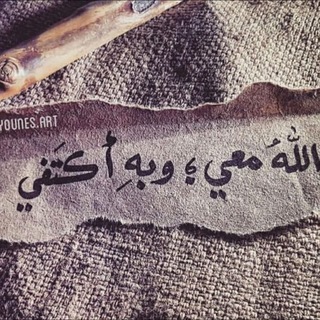 YOUNES.ART
اللهُ معي ؛ وبهِ أكتَفي